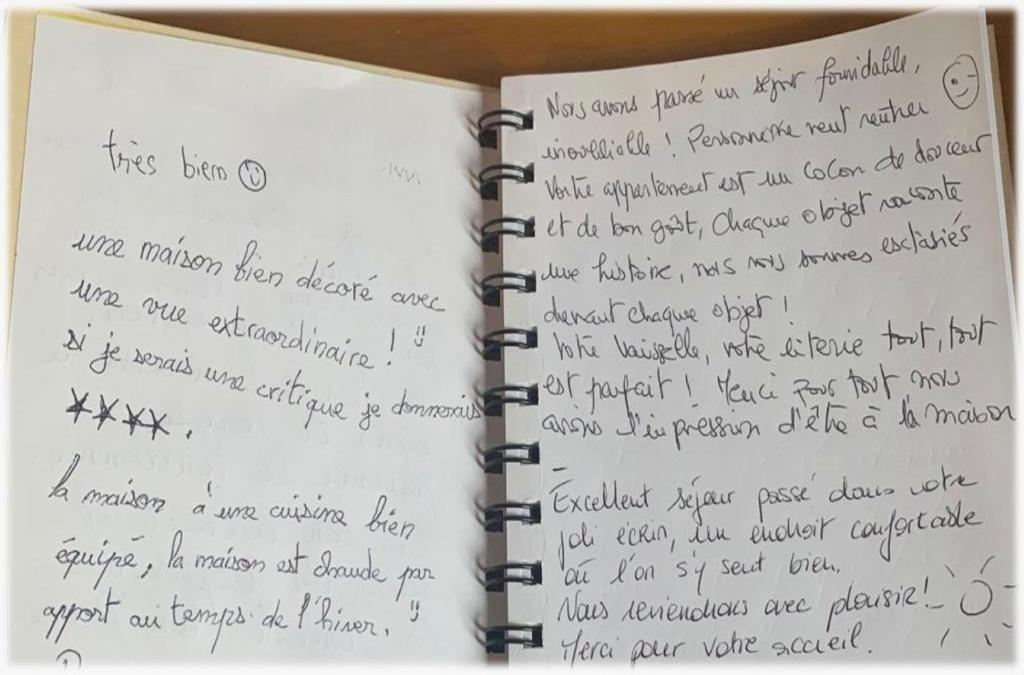 très bien
une maison bien décoré avec
une vue extraordinaire !
si je serais une critique je donnerais
****.
la maison à une cuisine bien
équipé, la maison est chaude par
apport au temps de l'hiver.
Nous avons passé un séjour formidable,
inoubliable ! Personne ne veut rentrer
Votre appartement est un cocon de douceur
et de bon goût, Chaque objet raconte
une histoire, nous nous sommes extasiés
devant chaque objet !
Votre Vaisselle, votre literie tout, tout
est parfait ! Merci pour tout nous
avions l'impression d'être à la maison
Excellent séjour passé dans votre
joli écrin, un endroit confortable
où l'on s'y sent bien.
Nous reviendrons avec plaisir !
Merci pour votre accueil.